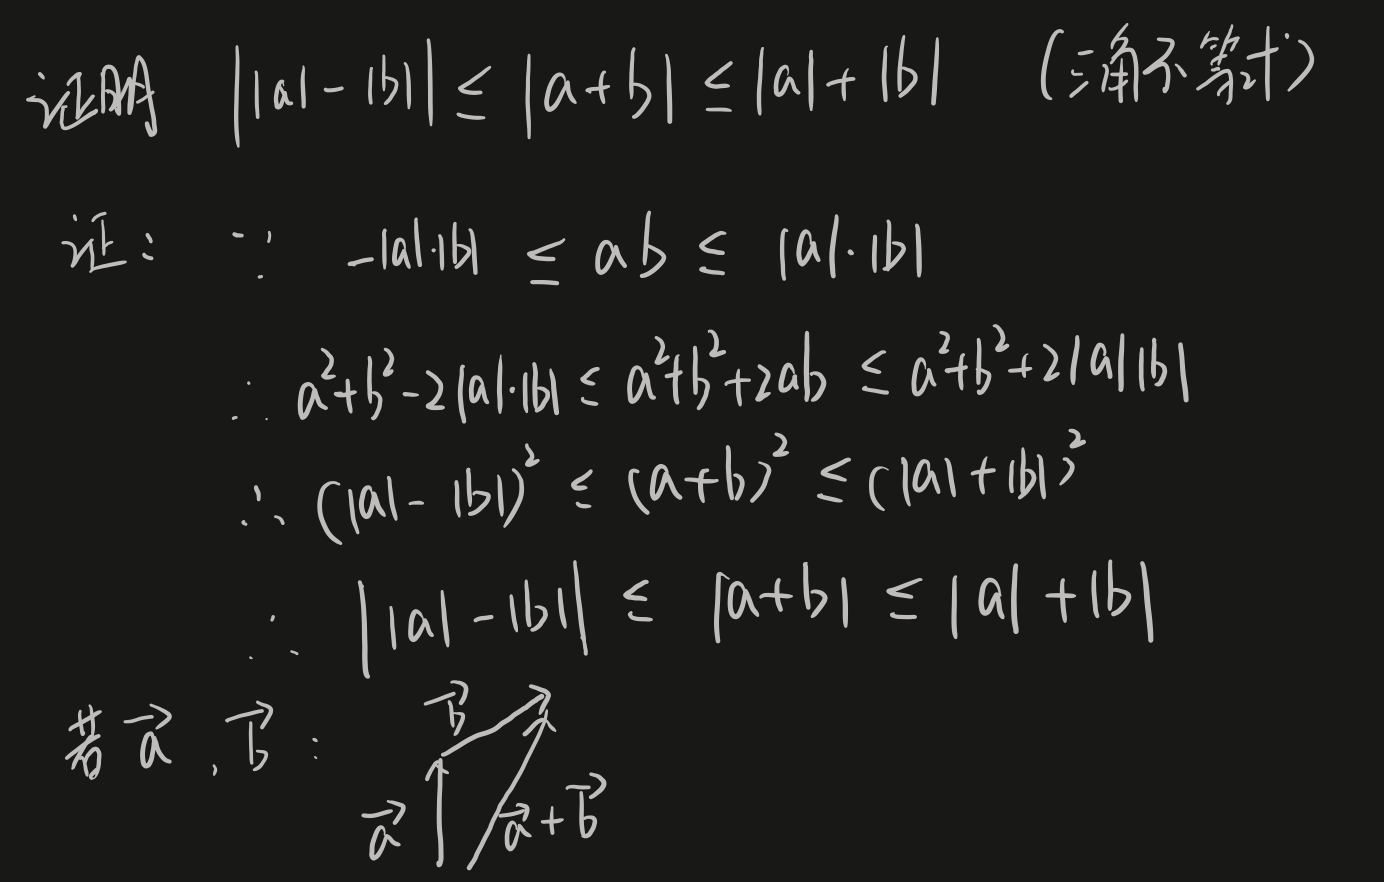 证明 ||a|-|b|| ≤ |a+b| ≤ |a|+|b| (三角不等式)
证: ∵ -|a|·|b| ≤ ab ≤ |a|·|b|
∴ a²+b²-2|a|·|b| ≤ a²+b²+2ab ≤ a²+b²+2|a||b|
∴ (|a|-|b|)² ≤ (a+b)² ≤ (|a|+|b|)²
∴ ||a|-|b|| ≤ |a+b| ≤ |a|+|b|
若 a⃗, b⃗ :
b⃗
a⃗
a⃗+b⃗